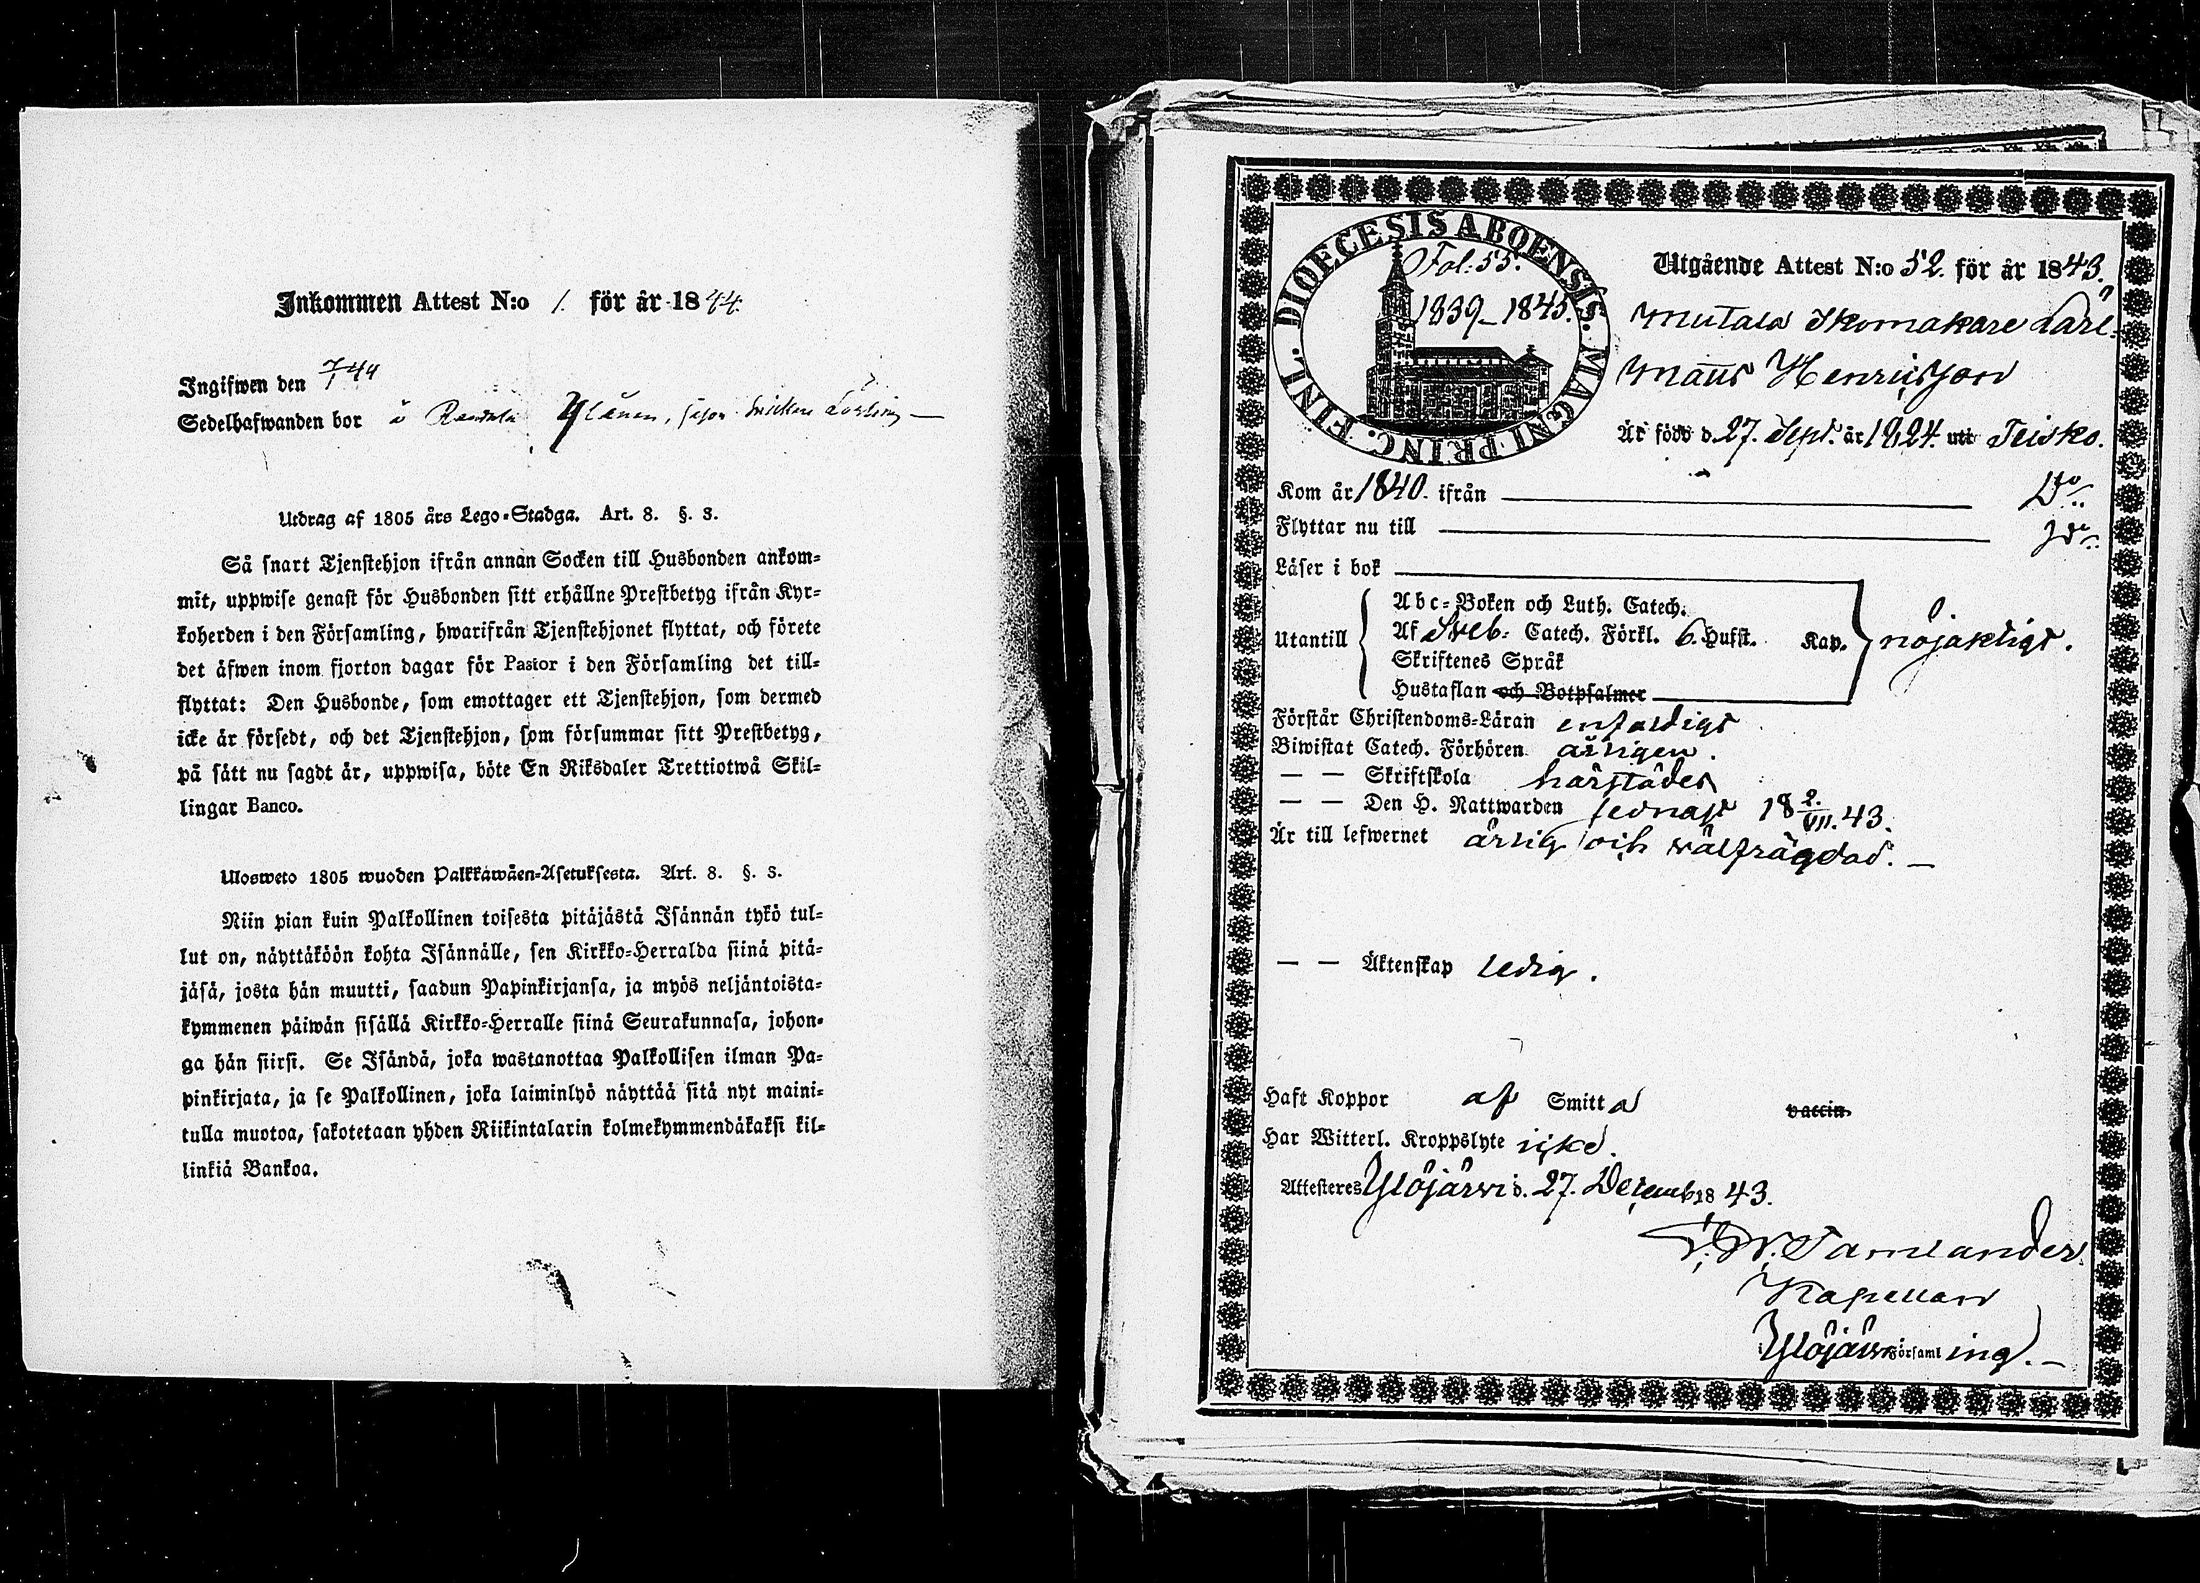 Inkommen Attest N:o 1. för år 1844.
Ingifwen den 7/1 44
Sedelhafwanden bor å Ylänen, såsom
Utdrag af 1805 års Lego-Stadga. Art. 8. §. 3.
Så snart Tjenstehjon ifrån annan Socken till Husbonden ankom-
mit, uppwise genast för Husbonden sitt erhållne Prestbetyg ifrån Kyr-
koherden i den Församling, hwarifrån Tjenstehjonet flyttat, och förete
det äfwen inom fjorton dagar för Pastor i den Församling det till-
flyttat: Den Husbonde, som emottager ett Tjenstehjon, som dermed
icke är försedt, och det Tjenstehjon, som försummar sitt Prestbetyg,
på sätt nu sagdt är, uppwisa, böte En Riksdaler Trettiotwå Skil-
lingar Banco.
Ulosweto 1805 wuoden Palkkawäen-Asetuksesta. Art. 8. §. 3.
Niin pian kuin Palkollinen toisesta pitäjästä Isännän tykö tul-
lut on, näyttäköön kohta Isännälle, sen Kirkko-Herralda siinä pitä-
jäsä, josta hän muutti, saadun Papinkirjansa, ja myös neljäntoista-
kymmenen päiwän sisällä Kirkko-Herralle siinä Seurakunnasa, johon-
ga hän siirsi. Se Isändä, joka wastanottaa Palkollisen ilman Pa-
pinkirjata, ja se Palkollinen, joka laiminlyö näyttää sitä nyt maini-
tulla muotoa, sakotetaan yhden Riikintalarin kolmekymmendäkaksi kil-
linkiä Bankoa.
DIOECESIS ABOENSIS. MAGNI PRINC. FINL.
Fol: 55.
1839-1845.
Utgående Attest N:o 52. för år 1843.
Mutala Skomakare Lärl.
Mats Henricsson
Är född d. 27. Sept. år 1824. uti Teisko.
Kom år 1840. ifrån D:o
Flyttar nu till D:o
Läser i bok
Utantill
Abc-Boken och Luth. Catech.
Af Sveb: Catech. Förkl. 6. Hufst. Kap.
Skriftenes Språk
Hustaflan och Botpsalmer
nöjaktigt.
Förstår Christendoms-Läran enfaldigt
Biwistat Catech. Förhören årligen.
— — Skriftskola härstädes
— — Den H. Nattwarden sednast 18 2/VII. 43.
Är till lefwernet ärlig och välfrägdad.
— — Äktenskap ledig.
Haft Koppor af Smitta vaccin.
Har Witterl. Kroppslyte icke.
Attesteres Ylöjärvi d. 27. Decemb 1843.
Tamlander
Kapellan
Ylöjärvi Församling.